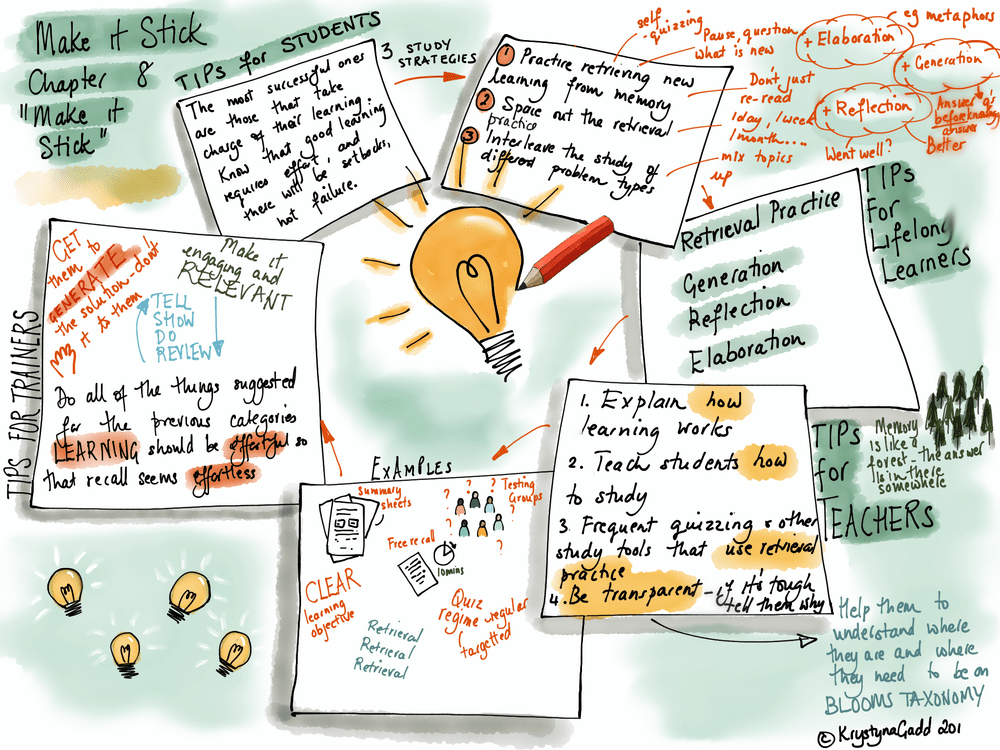 Make it Stick
Chapter 8
"Make it
Stick"
TIPs for STUDENTS
The most successful ones
are those that take
charge of their learning.
Know that good learning
requires effort, and
there will be setbacks,
not failure.
3 STUDY
STRATEGIES
1 Practice retrieving new
learning from memory
2 Space out the retrieval
practice
3 Interleave the study of
different problem types
self
-quizzing
Pause, question
what is new
Don't just
re-read
1 day, 1 week
1 month....
mix topics
up
+ Elaboration
eg metaphors
+ Generation
Answer q's
before knowing
answer
+ Reflection
Went well?
Better
TIPs
For
Lifelong
Learners
Retrieval Practice
Generation
Reflection
Elaboration
TIPs
for
TEACHERS
Memory
is like a
forest - the answer
is in there
somewhere
1. Explain how
learning works
2. Teach students how
to study
3. Frequent quizzing & other
study tools that use retrieval
practice
4. Be transparent - if it's tough
tell them why
Help them to
understand where
they are and where
they need to be on
BLOOMS TAXONOMY
EXAMPLES
Summary
sheets
? ? ? ? ?
Testing
Groups
Free recall
10mins
CLEAR
learning
objective
Quiz
regime - regular
targetted
Retrieval
Retrieval
Retrieval
TIPS FOR TRAINERS
GET
them to
GENERATE
the solution - don't
it to them
Make it
engaging and
RELEVANT
TELL
SHOW
DO
REVIEW
Do all of the things suggested
for the previous categories
LEARNING should be effortful so
that recall seems effortless
© KrystynaGadd 201